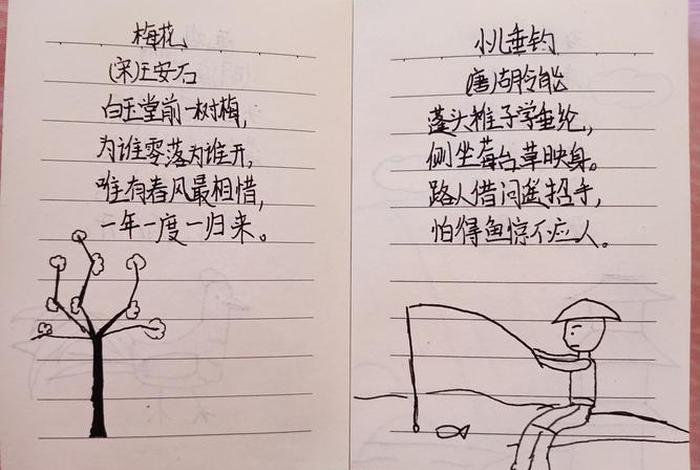 梅花
(宋)王安石
白玉堂前一树梅,
为谁零落为谁开,
唯有春风最相惜,
一年一度一归来。
小儿垂钓
唐胡令能
蓬头稚子学垂纶,
侧坐莓苔草映身。
路人借问遥招手,
怕得鱼惊不应人。